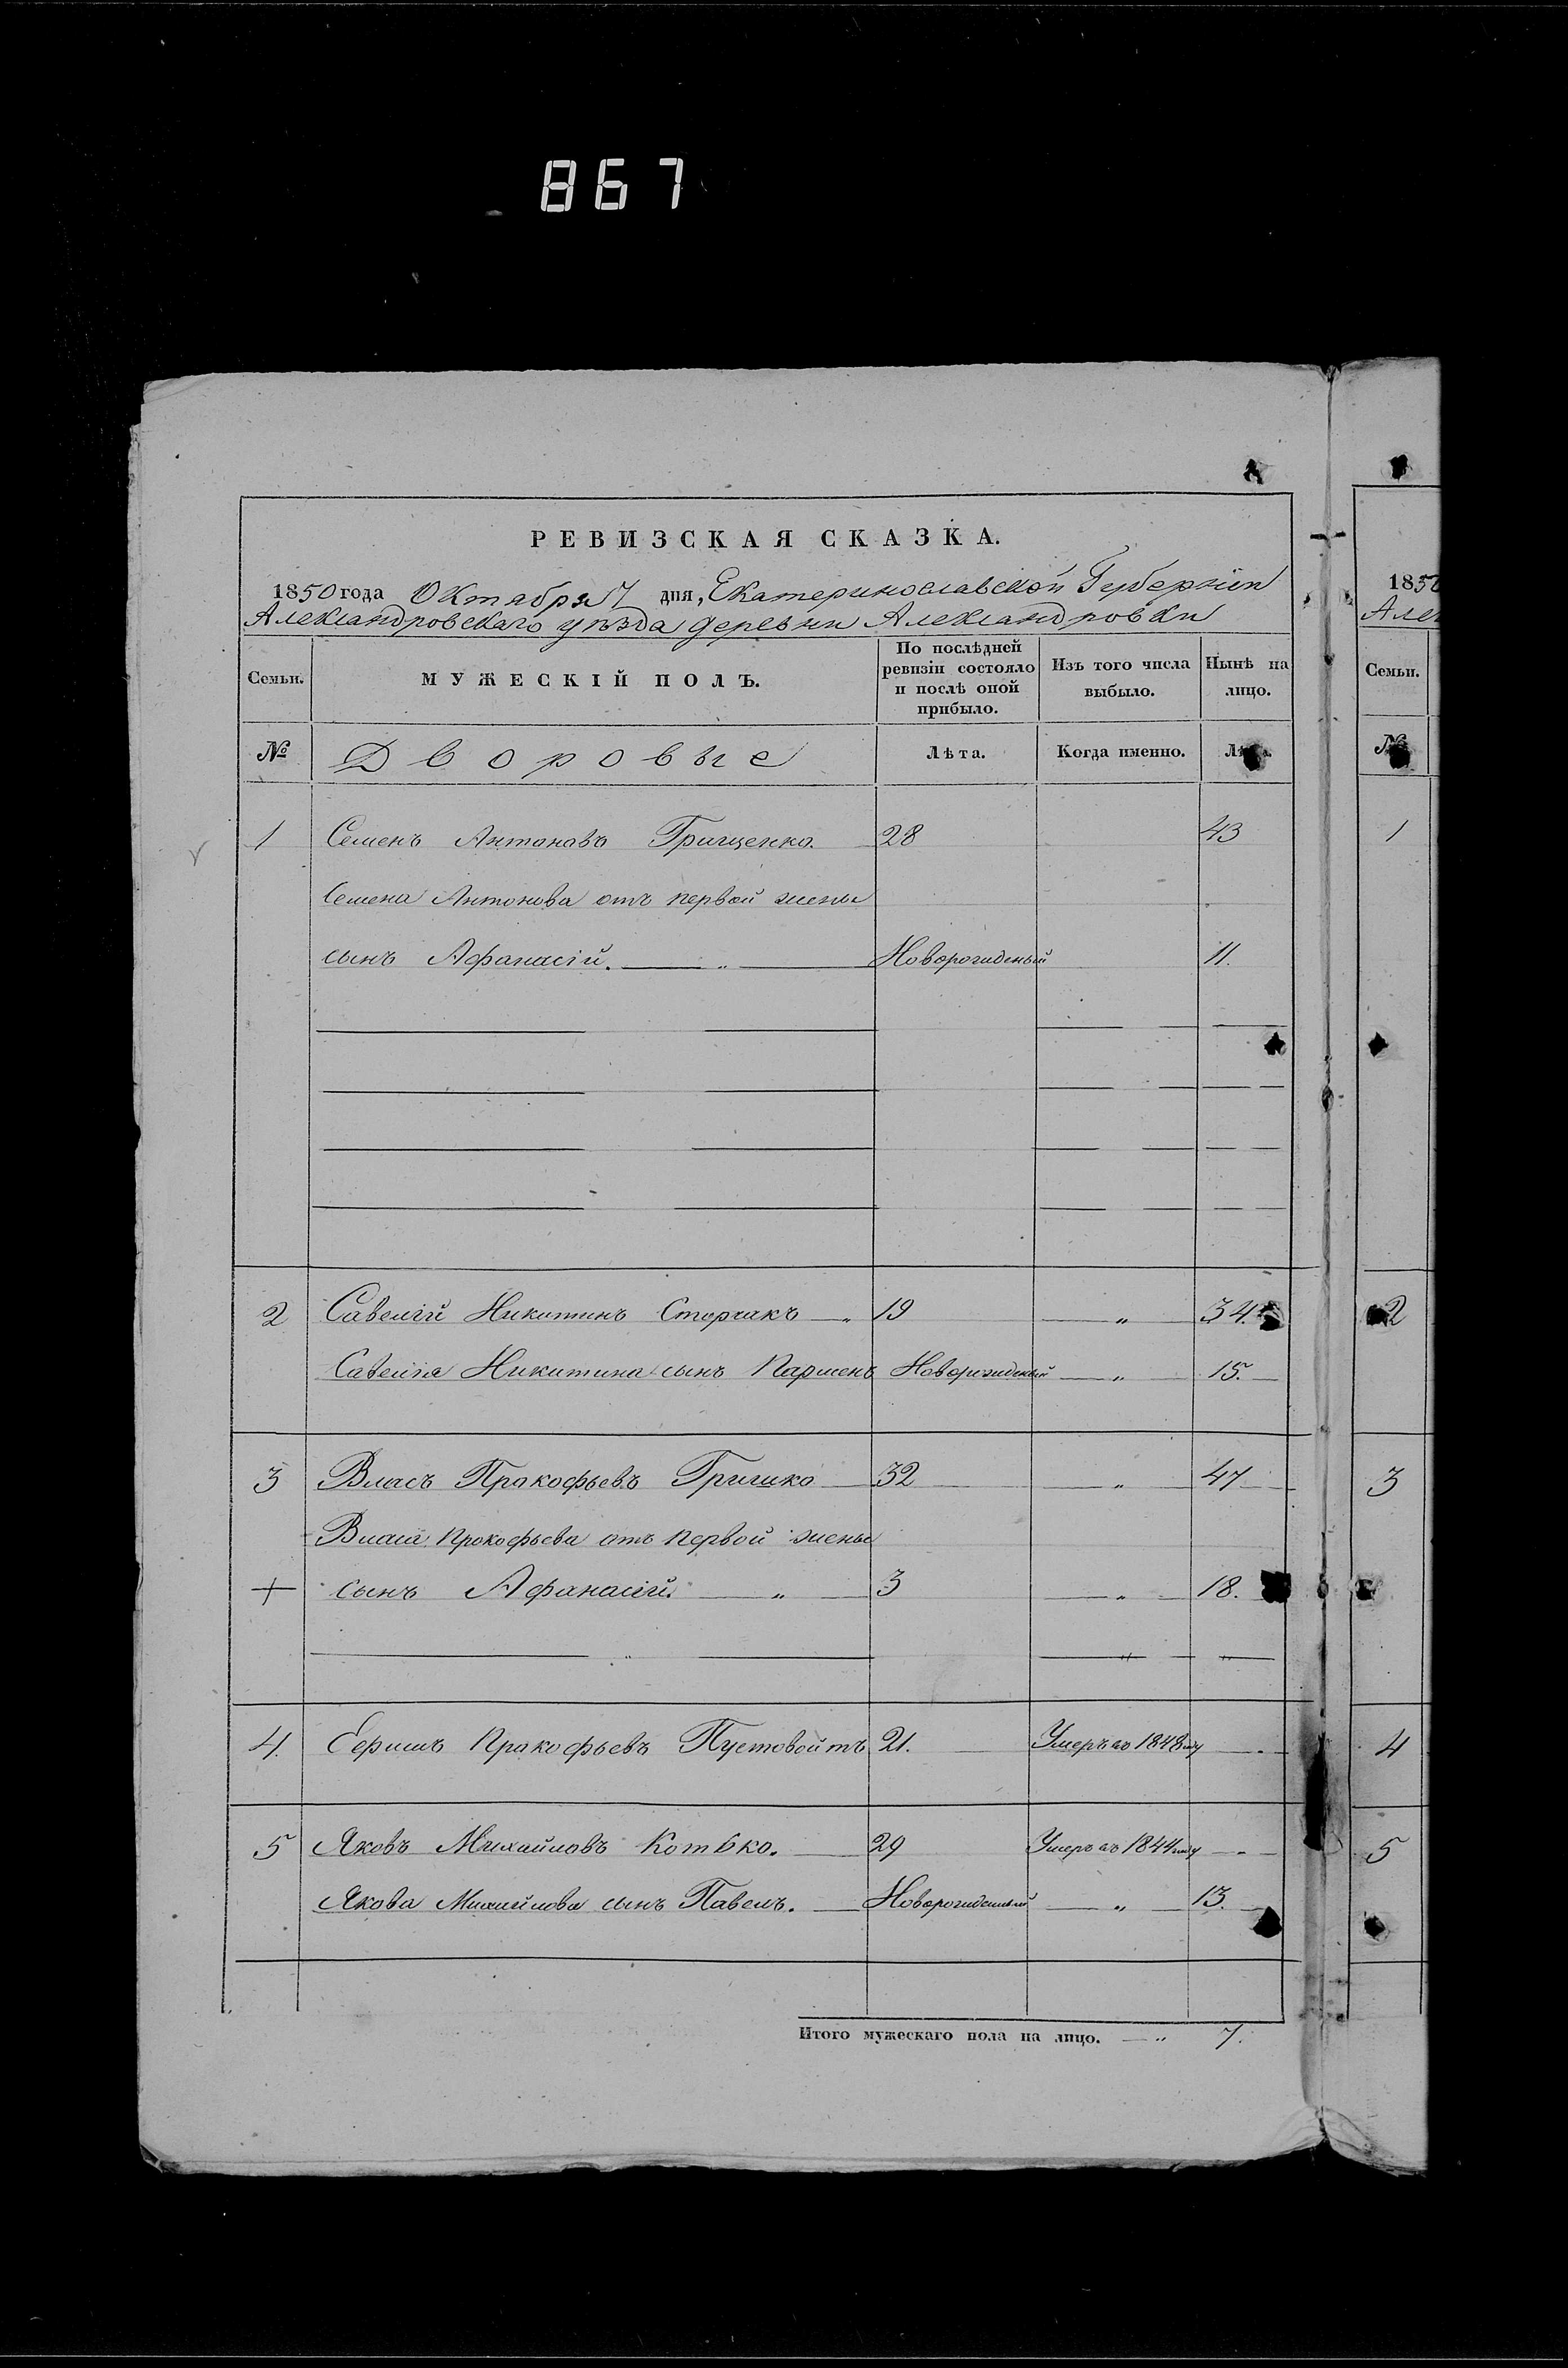 867
РЕВИЗСКАЯ СКАЗКА.
1850 года Октября 7 дня, Екатеринославской Губерніи
Александровскаго уѣзда деревни Александровки
Семьи. МУЖЕСКІЙ ПОЛЪ. По послѣдней ревизіи состояло и послѣ оной прибыло. Изъ того числа выбыло. Нынѣ на лицо.
№ Дворовые Лѣта. Когда именно. Лѣта.
1 Семенъ Антоновъ Грищенко. 28 43
Семена Антонова отъ первой жены
сынъ Афанасій. — „ — Новорожденый 11.
2 Савелій Никитинъ Сторчакъ — „ 19 — „ — 34.
Савелія Никитина сынъ Парменъ Новорожденый — „ — 15. —
3 Власъ Прокофьевъ Гришко — 32 — „ — 47 —
Власа Прокофьева отъ первой жены
+ сынъ Афанасій. — „ — 3 — „ — 18.
4. Ефимъ Прокофьевъ Пустовойтъ 21. — Умеръ въ 1848 году —
5 Яковъ Михайловъ Котько. — 29 Умеръ въ 1844 году —
Якова Михайлова сынъ Павелъ. — Новорожденный — „ — 13.
Итого мужескаго пола на лицо. — „ 7.
1850
Алек
Семьи.
№
1
2
3
4
5